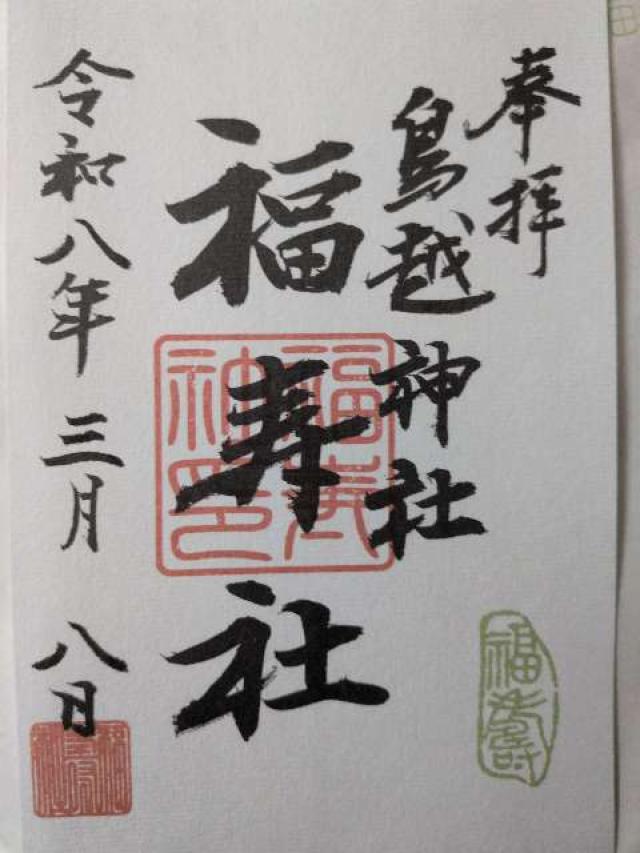 奉拝
鳥越神社
福寿社
令和八年三月八日
福寿